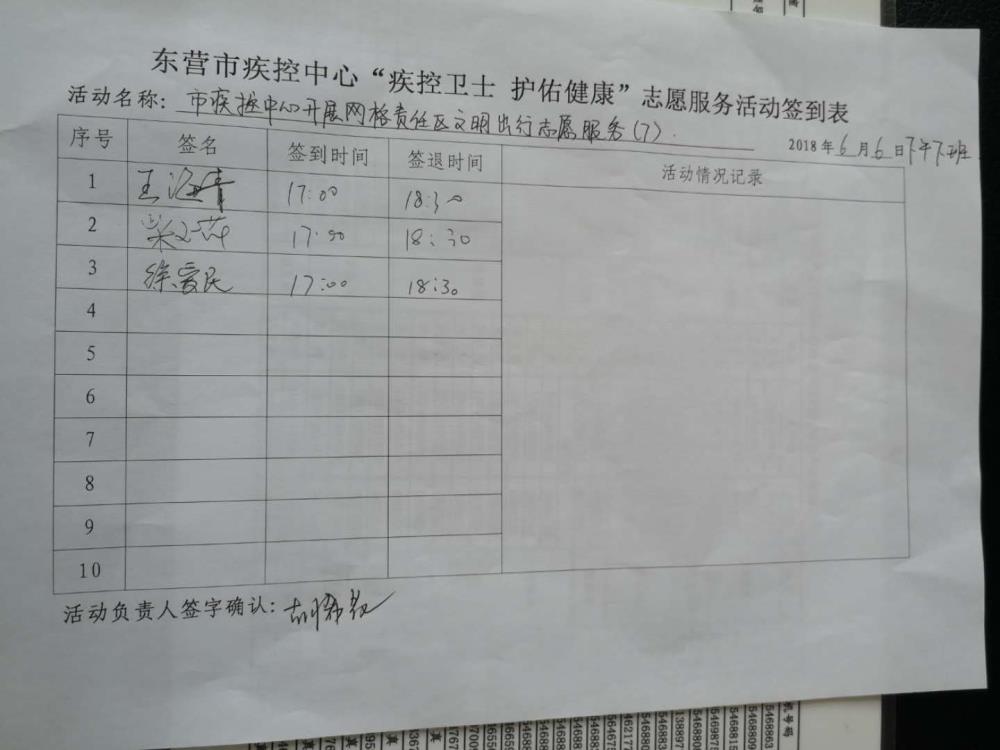 东营市疾控中心“疾控卫士 护佑健康”志愿服务活动签到表
活动名称：市疾控中心开展网格责任区文明出行志愿服务(7).
2018年6月6日下午下班
序号 签名 签到时间 签退时间 活动情况记录
1 王海青 17:00 18:30
2 17:00 18:30
3 徐爱民 17:00 18:30
4
5
6
7
8
9
10
活动负责人签字确认：